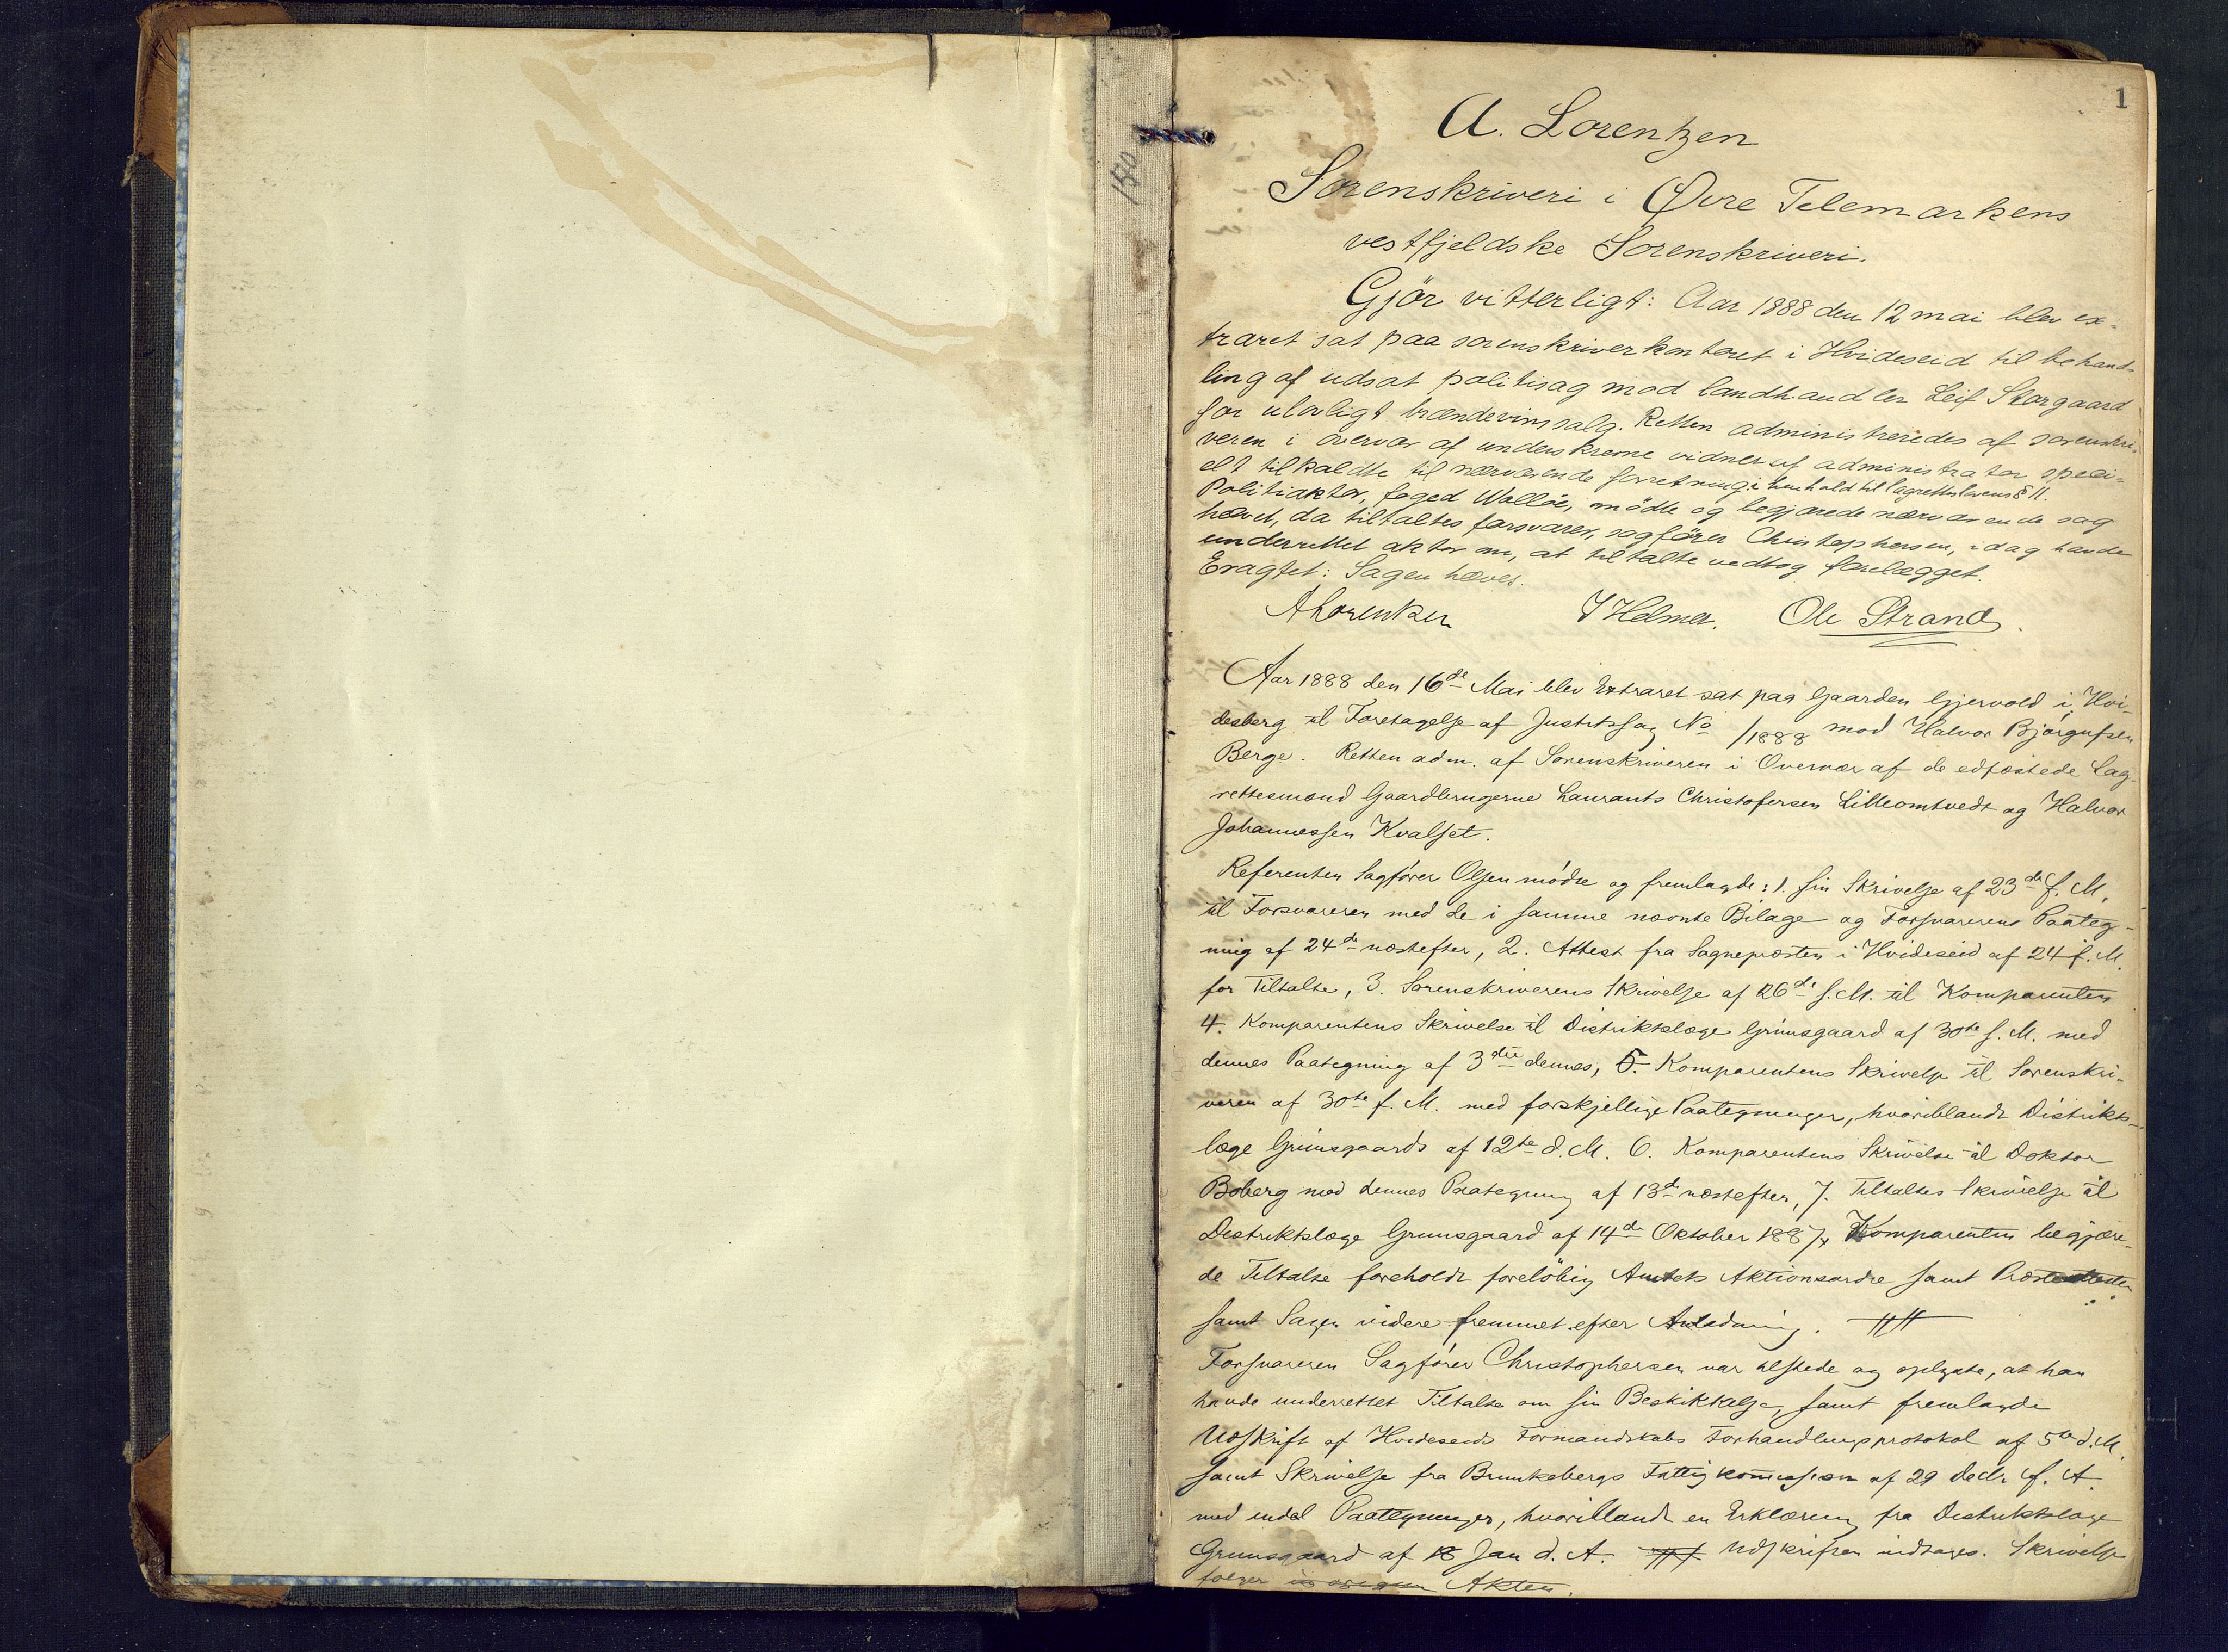 1
150
A. Lorentzen
Sorenskriveri i Øvre Telemarkens
vestfjeldske Sorenskriveri.
Gjör vitterligt: Aar 1888 den 12 mai blev ex-
traret sat paa sorenskriverkontoret i Hvideseid til behand-
ling af udsat politisag mod landhandler Leif Storgaard
for ulovligt brændevinssalg. Retten administreredes af sorenskri-
veren i overvær af underskrevne vidner af administrator speci-
elt tilkaldte til nærværende forretning i henhold til lagrettelovens § 11.
Politiaktor, foged Walløe, mødte og begjærede nærværende sag
hævet, da tiltaltes forsvarer, sagfører Christophersen, idag havde
underrettet aktor om, at tiltalte vedtog forelægget.
Eragtet: Sagen hæves.
A Lorentzen J Helmer. Ole Strand.
Aar 1888 den 16de Mai blev Extraret sat paa Gaarden Gjervold i Hvi-
desberg til Foretagelse af Justitssag No /1888 mod Halvor Bjørgufsen
Berge. Retten adm. af Sorenskriveren i Overvær af de edfæstede Lag-
rettesmænd Gaardbrugerne Laurants Christofersen Lilleomtvedt og Halvor
Johannessen Kvalset.
Referenten Sagfører Olsen mødte og fremlagde: 1. sin Skrivelse af 23de f. M.
til Forsvareren med de i samme nævnte Bilage og Forsvarerens Paateg-
ning af 24de næstefter, 2. Attest fra Sognepræsten i Hvideseid af 24 f. M.
for Tiltalte, 3. Sorenskriverens Skrivelse af 26de f. M. til Komparenten
4. Komparentens Skrivelse til Distriktslæge Grimsgaard af 30te f. M. med
dennes Paategning af 3die dennes, 5. Komparentens Skrivelse til Sorenskri-
veren af 30te f. M. med forskjellige Paategninger, hvoriblandt Distrikts-
læge Grimsgaards af 12te d. M. 6. Komparentens Skrivelse til Doktor
Boberg med dennes Paategning af 13de næstefter, 7. Tiltaltes Skrivelse til
Distriktslæge Grimsgaard af 14de Oktober 1887, Komparenten begjære-
de Tiltalte foreholdt foreløbig Amtets Aktionsordre samt Præsteattesten
samt Sagen videre fremmet efter Anledning.
Forsvareren Sagfører Christophersen var tilstede og oplyste, at han
havde underrettet Tiltalte om sin Beskikkelse, samt fremlagde
Udskrift af Hvideseids Formandskabs Forhandlingsprotokol af 5te d. M.
samt Skrivelse fra Brunkebergs Fattigkommission af 29 Decbr f. A.
med endel Paategninger, hvoriblandt en Erklæring fra Distriktslæge
Grimsgaard af 18 Jan d. A. Udskriften indtages. Skrivelse
følger Akten.